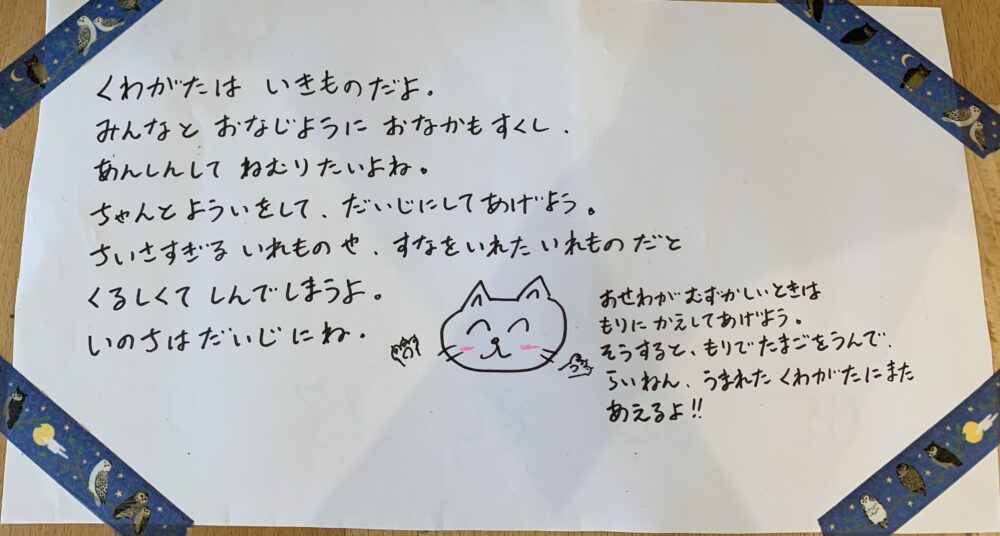 くわがたは いきものだよ。
みんなと おなじように おなかもすくし、
あんしんして ねむりたいよね。
ちゃんとよういをして、だいじにしてあげよう。
ちいさすぎる いれものや、すなをいれた いれものだと
くるしくて しんでしまうよ。
いのちはだいじにね。
おせわがむずかしいときは
もりに かえしてあげよう。
そうすると、もりでたまごをうんで、
らいねん、うまれた くわがたにまた
あえるよ!!